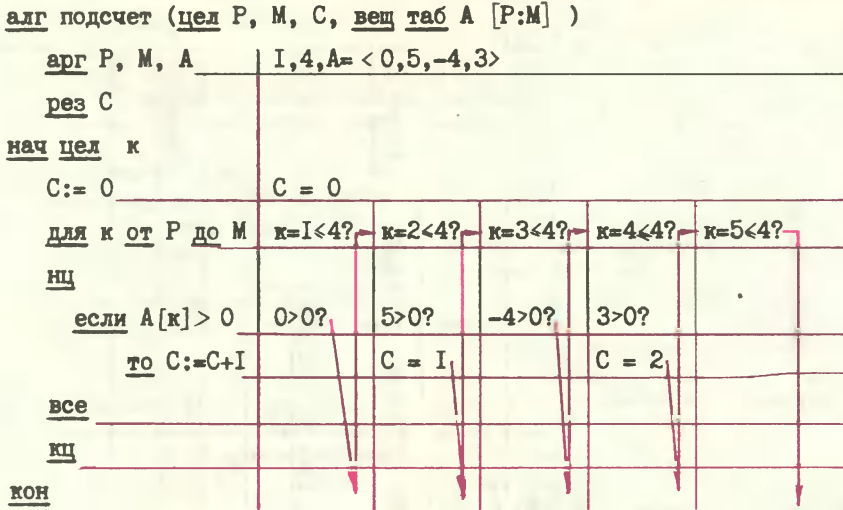 алг подсчет (цел Р, М, С, вещ таб А [Р:М] )
арг Р, М, А I,4,А= < 0,5,-4,3>
рез С
нач цел к
С:= 0 С = 0
для к от Р до М к=I≤4? к=2≤4? к=3≤4? к=4≤4? к=5≤4?
нц
если А[к]> 0 0>0? 5>0? -4>0? 3>0?
то С:=С+I С = I С = 2
все
кц
кон